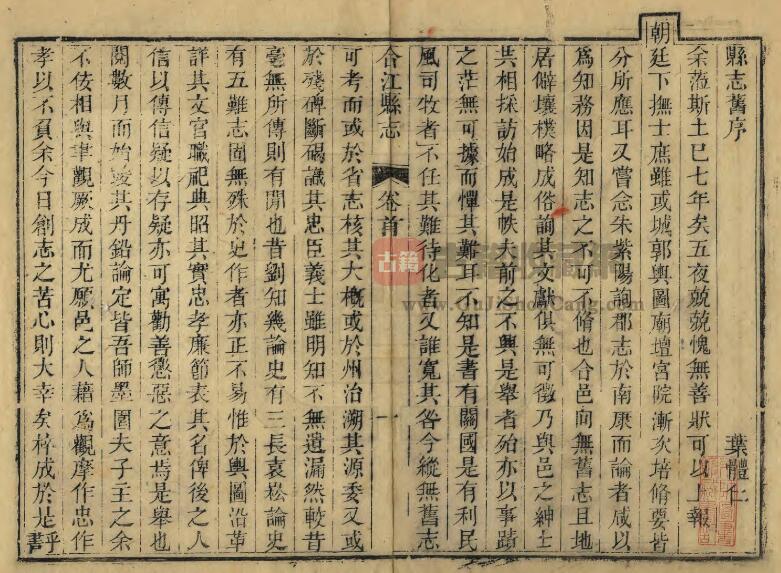 縣志舊序
葉體仁
余蒞斯土已七年矣五夜兢兢愧無善狀可以上報
朝廷下撫士庶雖或城郭輿圖廟壇宮院漸次培脩要皆
分所應耳又嘗念朱紫陽詢郡志於南康而論者咸以
為知務因是知志之不可不脩也合邑向無舊志且地
居僻壤樸略成俗詢其文獻俱無可徵乃與邑之紳士
共相採訪始成是帙夫前之不興是舉者殆亦以事蹟
之茫無可據而憚其難耳不知是書有關國是有利民
風司牧者不任其難待化者又誰寬其咎今縱無舊志
合江縣志
卷首
一
可考而或於省志核其大概或於州治溯其源委又或
於殘碑斷碣識其忠臣義士雖明知不無遺漏然較昔
毫無所傳則有間也昔劉知幾論史有三長袁崧論史
有五難志固無殊於史作者亦正不易惟於輿圖沿革
詳其文官職祀典昭其實忠孝廉節表其名俾後之人
信以傳信疑以存疑亦可寓勸善懲惡之意焉是舉也
閱數月而始竣其丹鉛論定皆吾師墨圃夫子主之余
不佞相與聿觀厥成而尤願邑之人藉為觀摩作忠作
孝以不負余今日創志之苦心則大幸矣梓成於是乎書
古籍
www.GuJiShouCang.com